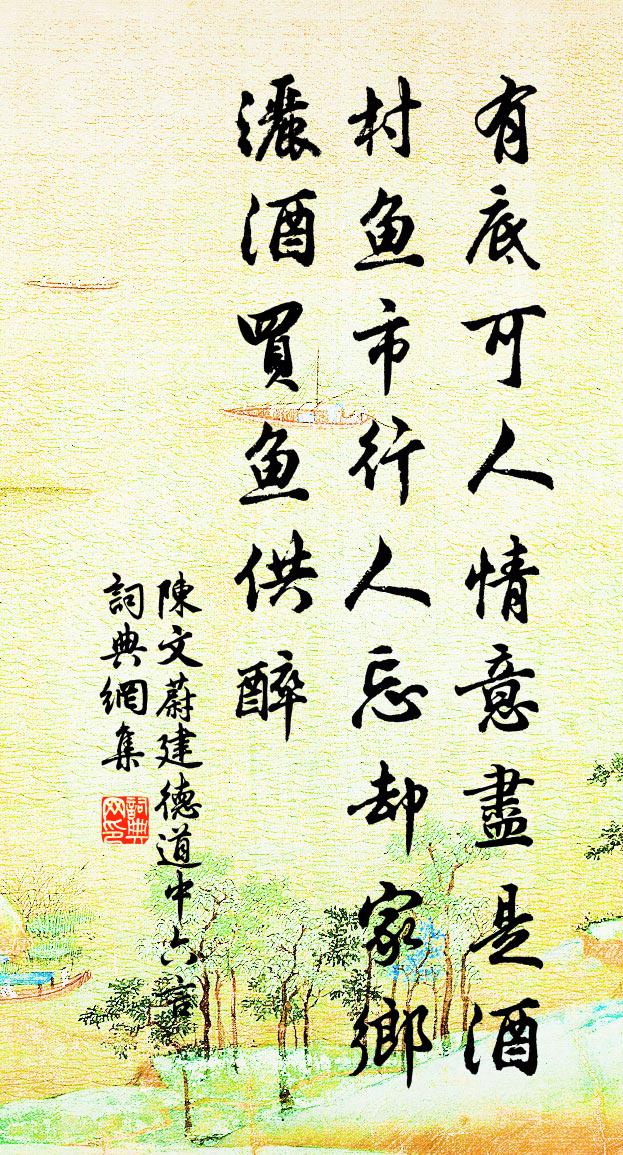 有底可人情意盡是酒
村魚市行人忘却家鄉
灑酒買魚供醉
陳文蔚建德道中六言
詞典網集
詞典
网印